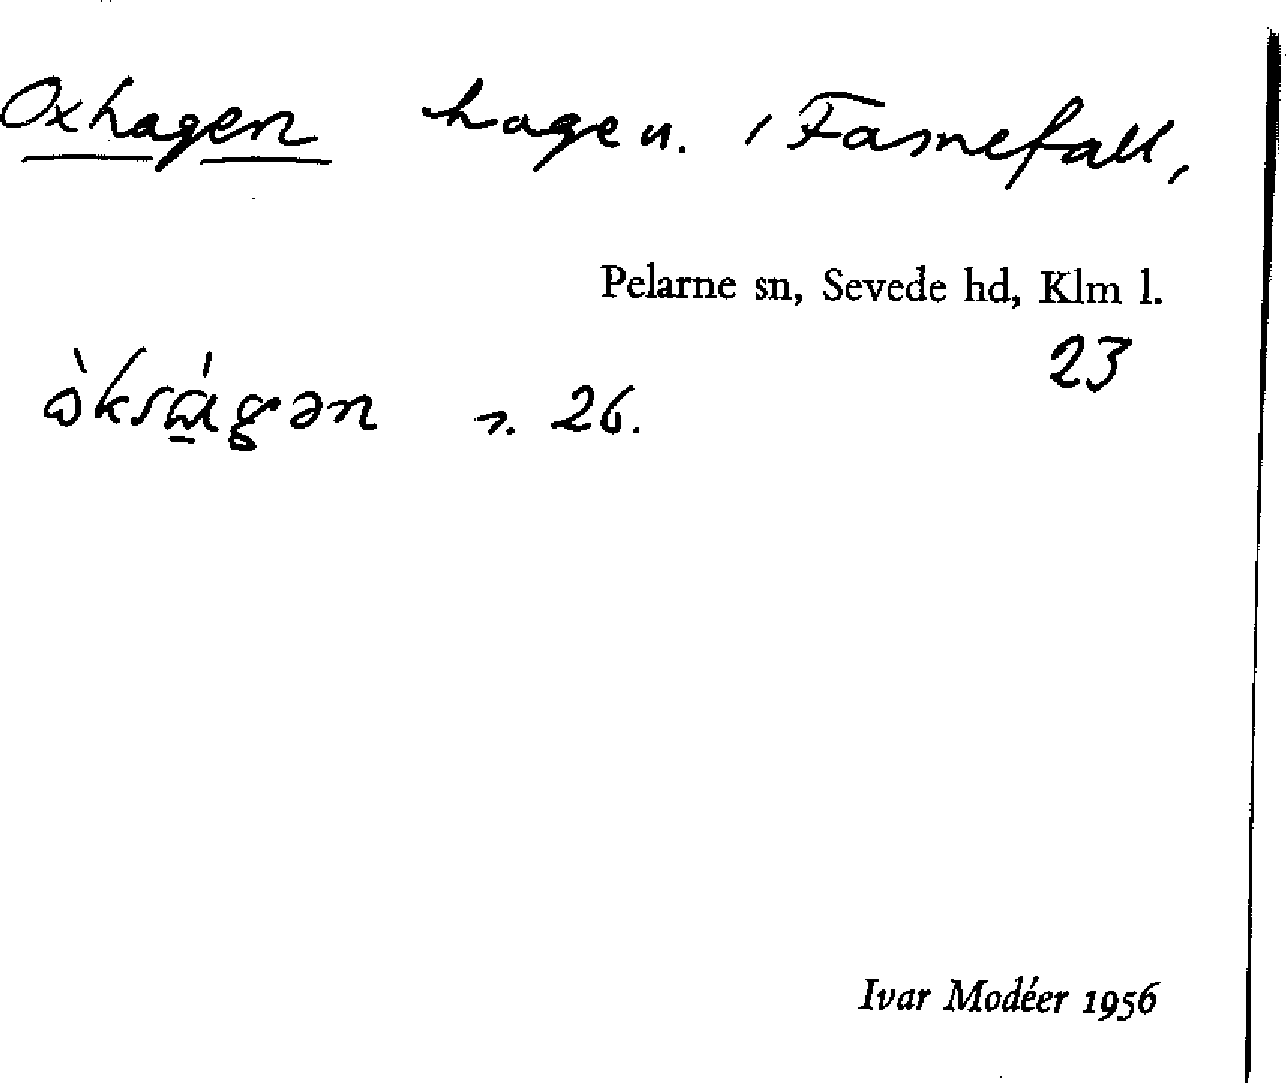 Oxhagen hage n. i Fasnefall,
Pelarne sn, Sevede hd, Klm l.
23
n. 26.
Ivar Modéer 1956